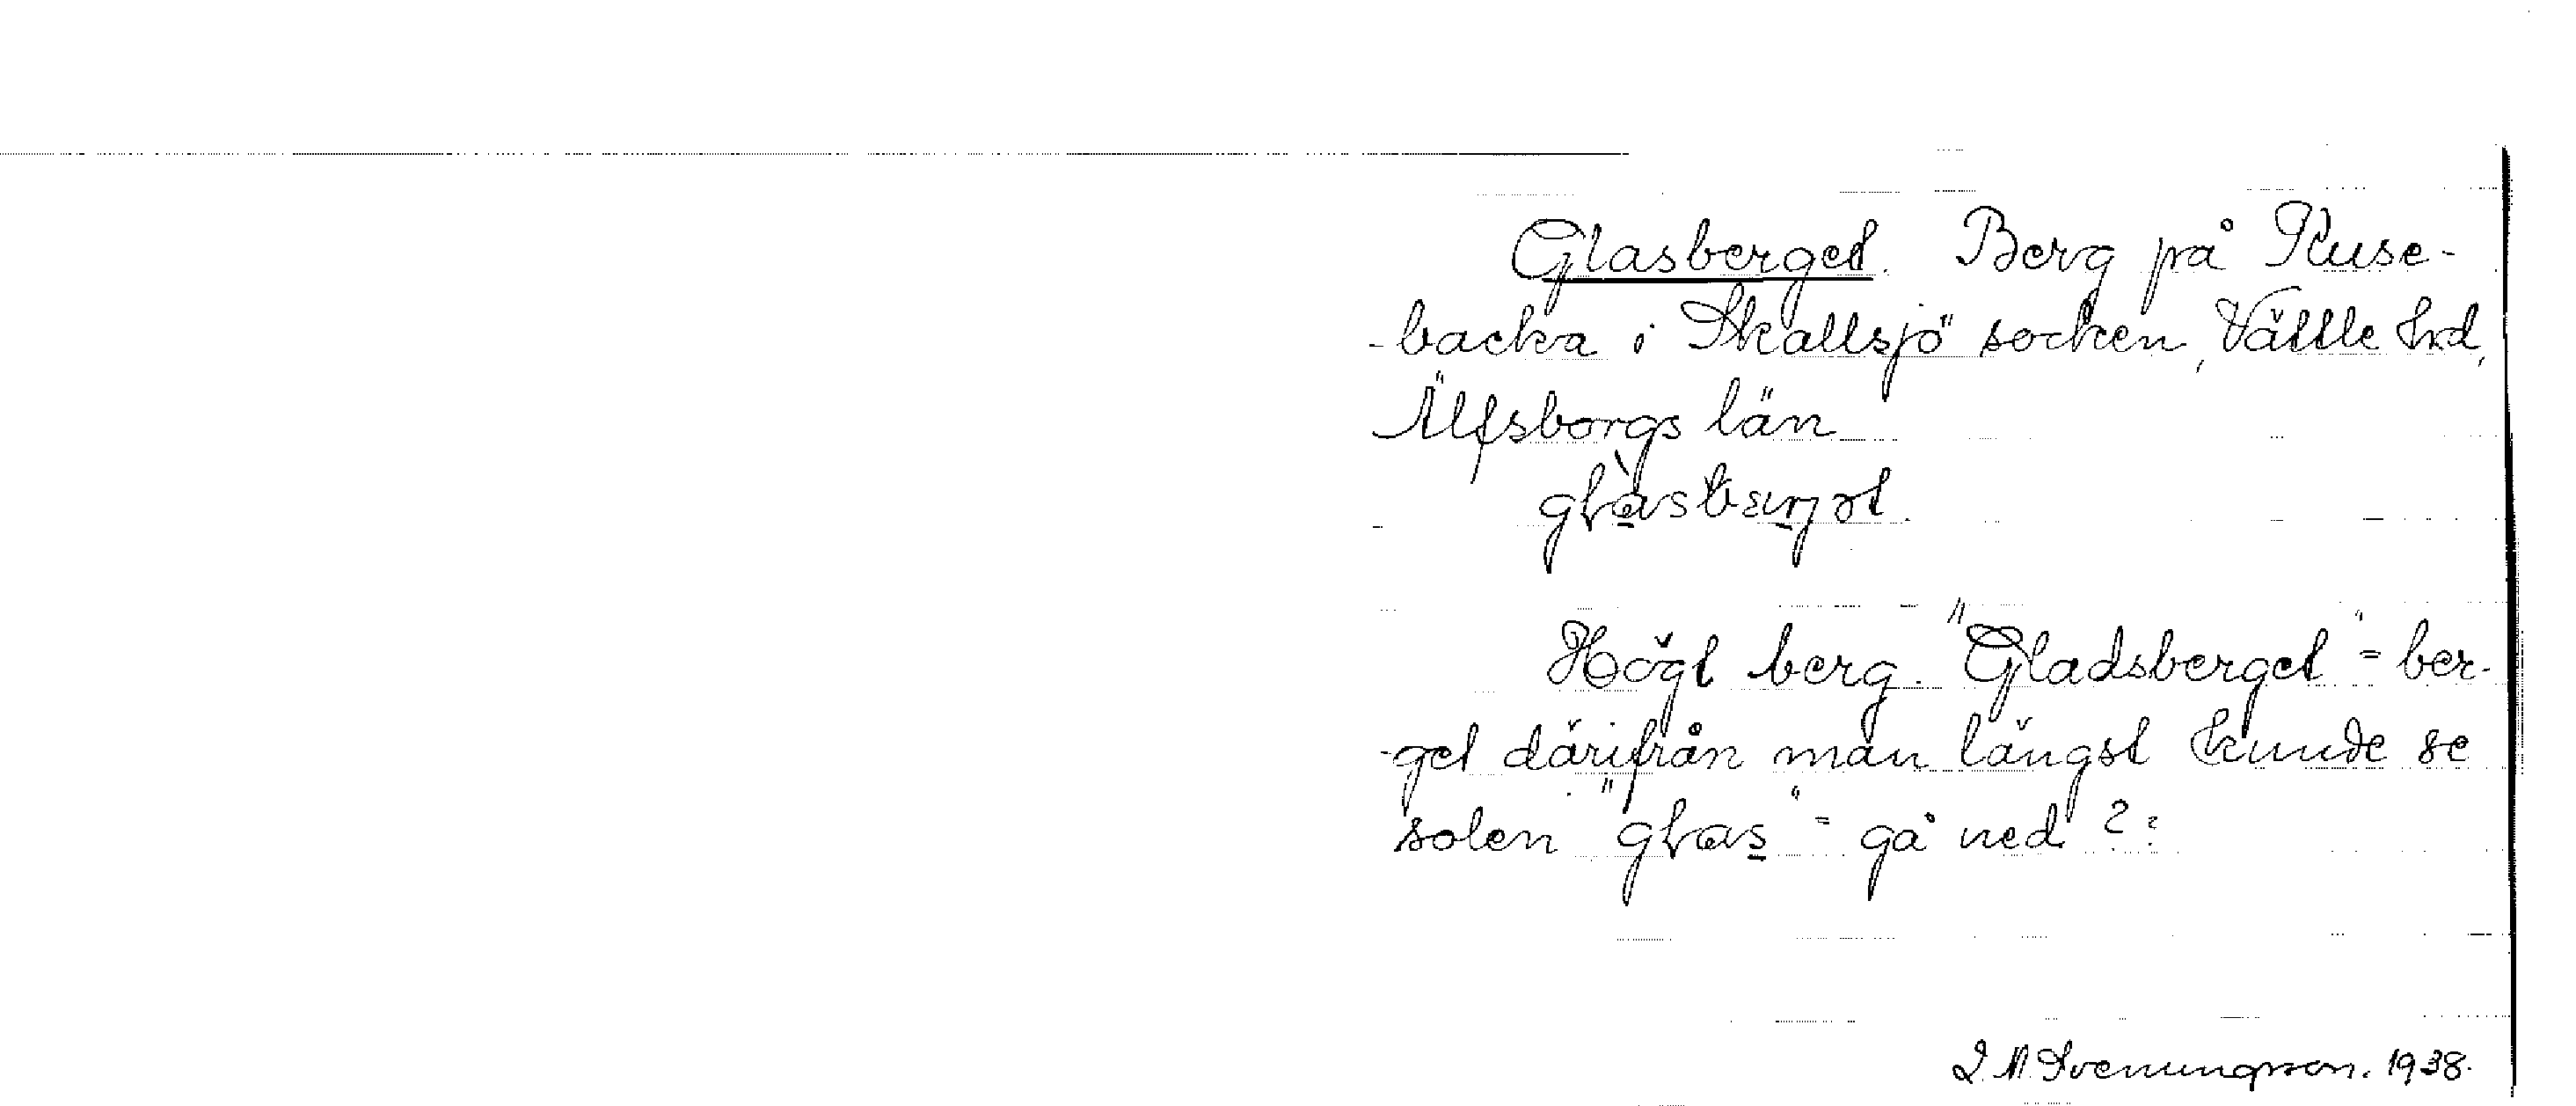 Glasberget. Berg på Ruse-
-backa i Skallsjö socken, Vättle hd,
Älfsborgs län
Högt berg. "Gladsberget" = ber-
-get därifrån man längst kunde se
solen "glas" = gå ned ?:
Svenungsson. 1938.